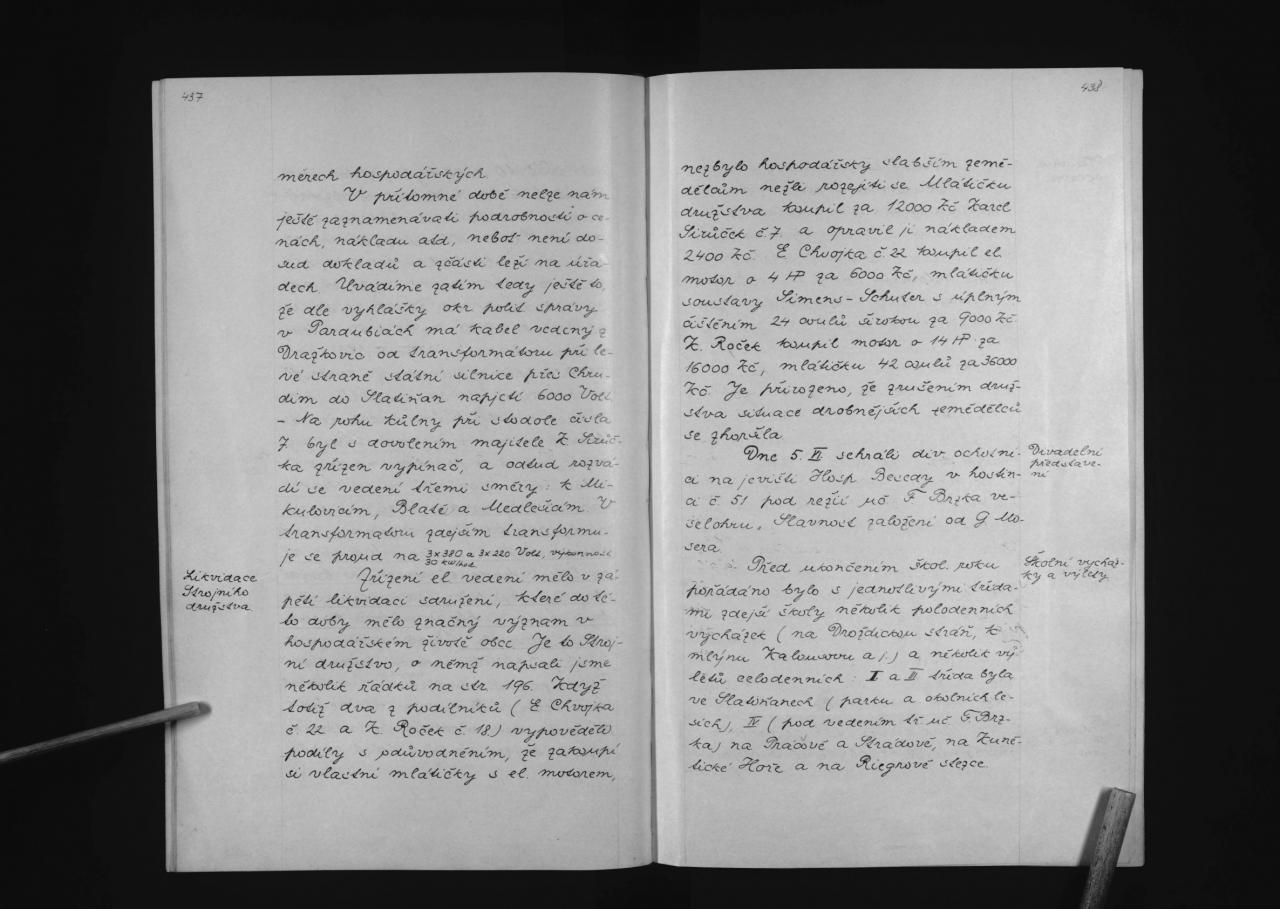 437
měrech hospodářských.
V přítomné době nelze nám
ještě zaznamenávati podrobnosti o ce-
nách, nákladu atd, neboť není do-
sud dokladů a zčásti leží na úřa-
dech. Uvádíme zatím tedy ještě to,
že dle vyhlášky okr polit správy
v Pardubicích má kabel vedený z
Dražkovic od transformátoru při le-
vé straně státní silnice přes Chru-
dim do Slatiňan napjetí 6000 Volt
- Na rohu kůlny při stodole čísla
7 byl s dovolením majitele K Sirůč-
ka zřízen vypínač, a odtud rozvá-
dí se vedení třemi směry: k Mi-
kulovicím, Blatě a Medlešicím. V
transformatoru zdejším transformu-
je se proud na 3x380 a 3x220 Volt, výkonnost
30 kw/hod.
Likvidace
Strojního
družstva
Zřízení el. vedení mělo v zá-
pětí likvidaci sdružení, které do té-
to doby mělo značný význam v
hospodářském životě obce. Je to Stroj-
ní družstvo, o němž napsali jsme
několik řádků na str. 196. Když
totiž dva z podílníků ( E Chvojka
č. 22 a K. Roček č. 18) vypověděli
podíly s odůvodněním, že zakoupí
si vlastní mlátičky s el. motorem,
438
nezbylo hospodářsky slabším země-
dělcům nežli rozejíti se. Mlátičku
družstva koupil za 12000 Kč Karel
Sirůček č. 7. a opravil ji nákladem
2400 Kč. E Chvojka č. 22 koupil el.
motor o 4 HP za 6000 Kč, mlátičku
soustavy Simens-Schuter s úplným
čištěním 24 coulů širokou za 9000 Kč.
K. Roček koupil motor o 14 HP za
16000 Kč, mlátičku 42 coulů za 36000
Kč. Je přirozeno, že zrušením druž-
stva situace drobnějších zemědělců
se zhoršila.
Dne 5. VI sehráli div. ochotní-
ci na jevišti Hosp Besedy v hostin-
ci č. 51 pod režií uč. F Brzka ve-
selohru, Slavnost založení od G Mo-
sera.
Divadelní
představe-
ní
Před ukončením škol. roku
pořádáno bylo s jednotlivými třída-
mi zdejší školy několik polodenních
vycházek ( na Drozdickou stráň, k
mlýnu Kalousovu a j.) a několik vý-
letů celodenních: I a II třída byla
ve Slatiňanech ( parku a okolních le-
sích), IV ( pod vedením tř uč F. Brz-
ka) na Práčově a Strádově, na Kuně-
tické Hoře a na Riegrově stezce.
Školní vycház-
ky a výlety